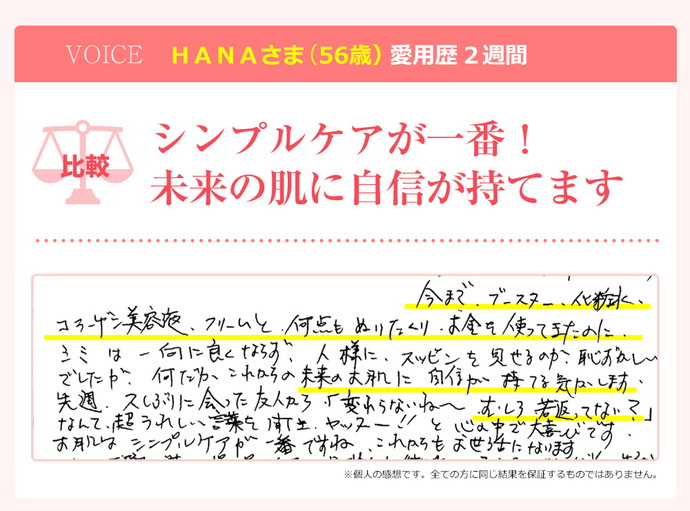 VOICE HANAさま(56歳) 愛用歴2週間
比較
シンプルケアが一番！
未来の肌に自信が持てます
今まで、ブースター、化粧水、
コラーゲン美容液、クリームと、何点もぬりたくり、お金を使ってきたのに、
シミは一向に良くならず、人様に、スッピンを見せるのが、恥ずかしい
でしたが、何だか、これからの未来のお肌に自信が持てる気がします
先週、久しぶりに会った友人から「変わらないね〜むしろ若返ってない？」
なんて、超うれしい言葉を頂き、ヤッター!!と心の中で大喜びです。
お肌はシンプルケアが一番ですね、これからもお世話になります
※個人の感想です。全ての方に同じ結果を保証するものではありません。